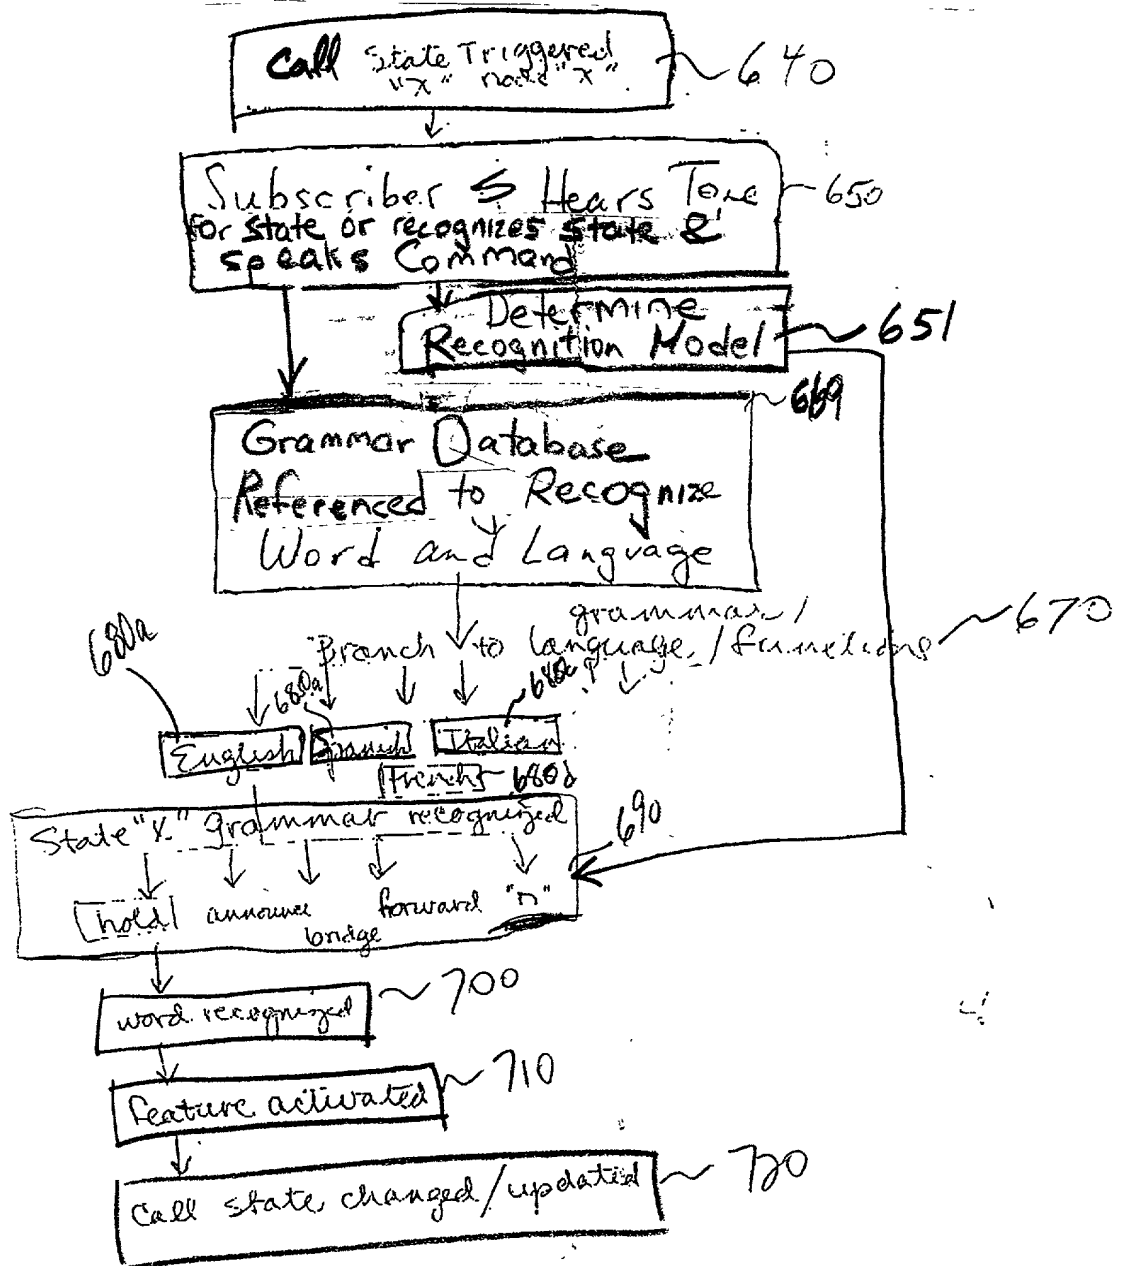 Call State Triggered
"x" node "x"
640
Subscriber S Hears Tone
for state or recognizes state &
speaks Command
650
Determine
Recognition Model
651
669
Grammar Database
Referenced to Recognize
Word and Language
grammar/
Branch to language/functions
670
680a
680a
680c
English
Spanish
Italian
French
680d
State "x" grammar recognized
690
hold
announce
bridge
forward
"n"
word recognized
700
feature activated
710
Call state changed/updated
720